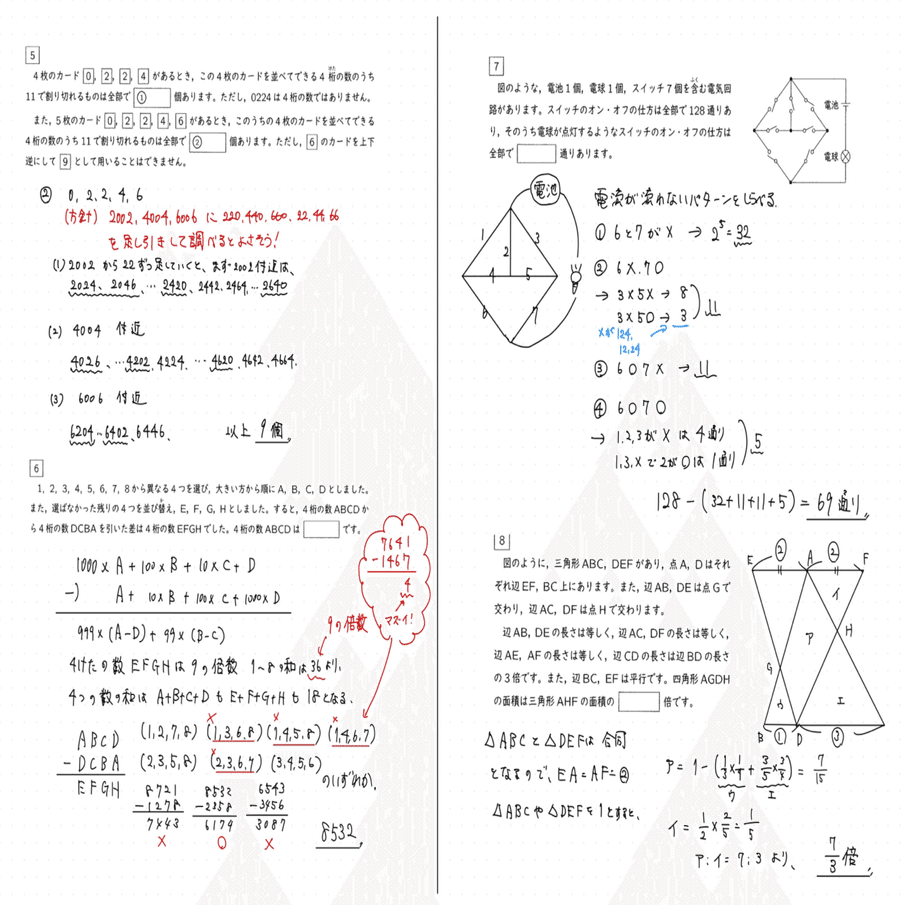 5
4枚のカード 0, 2, 2, 4 があるとき，この4枚のカードを並べてできる4桁の数のうち
11で割り切れるものは全部で ① 個あります。ただし，0224は4桁の数ではありません。
また，5枚のカード 0, 2, 2, 4, 6 があるとき，このうちの4枚のカードを並べてできる
4桁の数のうち11で割り切れるものは全部で ② 個あります。ただし，6 のカードを上下
逆にして 9 として用いることはできません。
② 0, 2, 2, 4, 6
(方針) 2002, 4004, 6006 に 220, 440, 660, 22, 44, 66
を足し引きして調べるとよさそう!
(1) 2002 から 22ずつ足していくと、まず2002付近は、
2024、2046、… 2420、2442、2464、… 2640
(2) 4004 付近
4026、… 4202、4224、… 4620、4642、4664、
(3) 6006 付近
6204 … 6402、6446、 以上 9個。
6
1, 2, 3, 4, 5, 6, 7, 8から異なる4つを選び，大きい方から順にA, B, C, Dとしました。
また，選ばなかった残りの4つを並び替え，E, F, G, Hとしました。すると，4桁の数ABCDか
ら4桁の数DCBAを引いた差は4桁の数EFGHでした。4桁の数ABCDは です。
1000×A + 100×B + 10×C + D
−) A + 10×B + 100×C + 1000×D
999×(A−D) + 99×(B−C)
7641
−1467
4
マズイ!
9の倍数
4けたの数 EFGHは 9の倍数 1〜8の和は36より、
4つの数の和は A+B+C+D も E+F+G+H も 18となる。
ABCD
−DCBA
EFGH
(1,2,7,8) (1,3,6,8) (1,4,5,8) (1,4,6,7)
(2,3,5,8) (2,3,6,7) (3,4,5,6)
のいずれか。
8721
−1278
7443
×
8532
−2358
6174
○
6543
−3456
3087
×
8532
7
図のような，電池1個，電球1個，スイッチ7個を含む電気回
路があります。スイッチのオン・オフの仕方は全部で128通りあ
り，そのうち電球が点灯するようなスイッチのオン・オフの仕方は
全部で 通りあります。
電池
電球
電池
1
2
3
4
5
6
7
電流が流れないパターンをしらべる
① 6と7が× → 2⁵=32
② 6×、7○
→ 3×5× → 8
3×5○ → 3
11
×が124,
12,24
③ 6○7× → 11
④ 6○7○
→ 1,2,3が× は 4通り
1,3,×で2が○は 1通り
5
128−(32+11+11+5)=69通り
8
図のように，三角形ABC, DEFがあり，点A, Dはそれ
ぞれ辺EF, BC上にあります。また，辺AB, DEは点Gで
交わり，辺AC, DFは点Hで交わります。
辺AB, DEの長さは等しく，辺AC, DFの長さは等しく，
辺AE, AFの長さは等しく，辺CDの長さは辺BDの長さ
の3倍です。また，辺BC, EFは平行です。四角形AGDH
の面積は三角形AHFの面積の 倍です。
② ②
E A F
イ
ア
H
G
ウ
エ
B ① D ③
△ABCと△DEFは 合同
となるので、EA=AF=②
△ABCや△DEFを1とすると、
ア = 1−(1/3×1/4 + 3/5×3/4) = 7/15
ウ エ
イ = 1/2×2/5 = 1/5
ア:イ = 7:3 より、 7/3倍